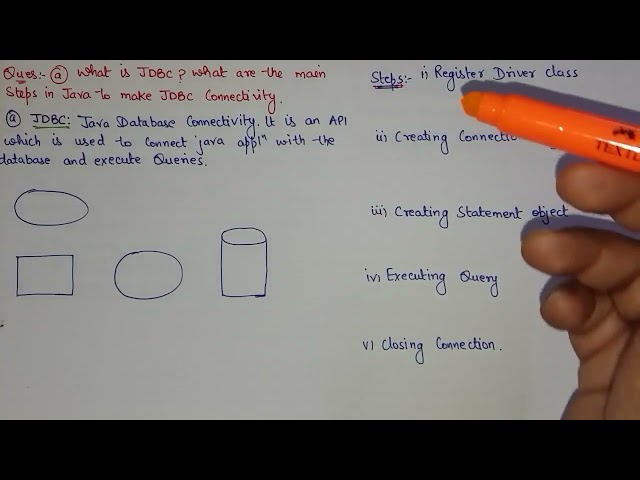 Ques:- (a) What is JDBC? what are the main
Steps in Java to make JDBC Connectivity.
(a) JDBC: Java Database Connectivity. It is an API
which is used to connect java appln with the
database and execute Queries.
Steps:- i) Register Driver class
ii) Creating Connectio
iii) Creating Statement object
iv) Executing Query
v) Closing Connection.